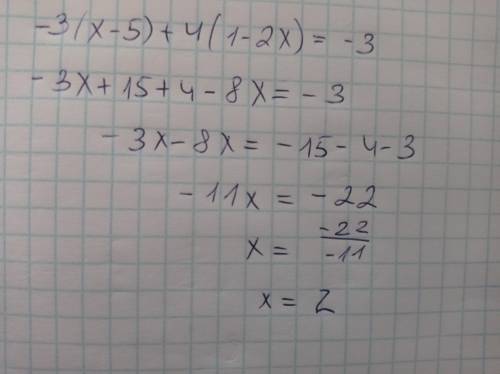 -3(x-5)+4(1-2x)= -3
-3x+15+4-8x=-3
-3x-8x= -15-4-3
-11x = -22
x= -22/-11
x= 2